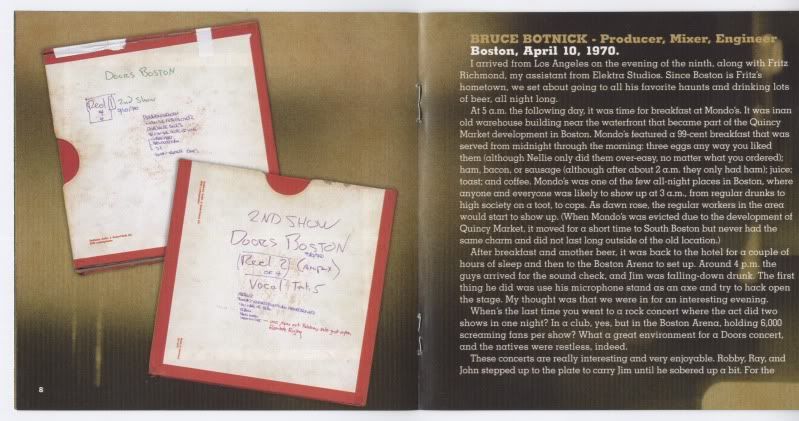 DOORS BOSTON
Reel 1
2nd Show
2ND SHOW
DOORS BOSTON
Reel 2 (Ampex)
OF 4
8
BRUCE BOTNICK - Producer, Mixer, Engineer
Boston, April 10, 1970.
I arrived from Los Angeles on the evening of the ninth, along with Fritz
Richmond, my assistant from Elektra Studios. Since Boston is Fritz's
hometown, we set about going to all his favorite haunts and drinking lots
of beer, all night long.
At 5 a.m. the following day, it was time for breakfast at Mondo's. It was inan
old warehouse building near the waterfront that became part of the Quincy
Market development in Boston. Mondo's featured a 99-cent breakfast that was
served from midnight through the morning: three eggs any way you liked
them (although Nellie only did them over-easy, no matter what you ordered);
ham, bacon, or sausage (although after about 2 a.m. they only had ham); juice;
toast; and coffee. Mondo's was one of the few all-night places in Boston, where
anyone and everyone was likely to show up at 3 a.m., from regular drunks to
high society on a toot, to cops. As dawn rose, the regular workers in the area
would start to show up. (When Mondo's was evicted due to the development of
Quincy Market, it moved for a short time to South Boston but never had the
same charm and did not last long outside of the old location.)
After breakfast and another beer, it was back to the hotel for a couple of
hours of sleep and then to the Boston Arena to set up. Around 4 p.m. the
guys arrived for the sound check, and Jim was falling-down drunk. The first
thing he did was use his microphone stand as an axe and try to hack open
the stage. My thought was that we were in for an interesting evening.
When's the last time you went to a rock concert where the act did two
shows in one night? In a club, yes, but in the Boston Arena, holding 6,000
screaming fans per show? What a great environment for a Doors concert,
and the natives were restless, indeed.
These concerts are really interesting and very enjoyable. Robby, Ray, and
John stepped up to the plate to carry Jim until he sobered up a bit. For the